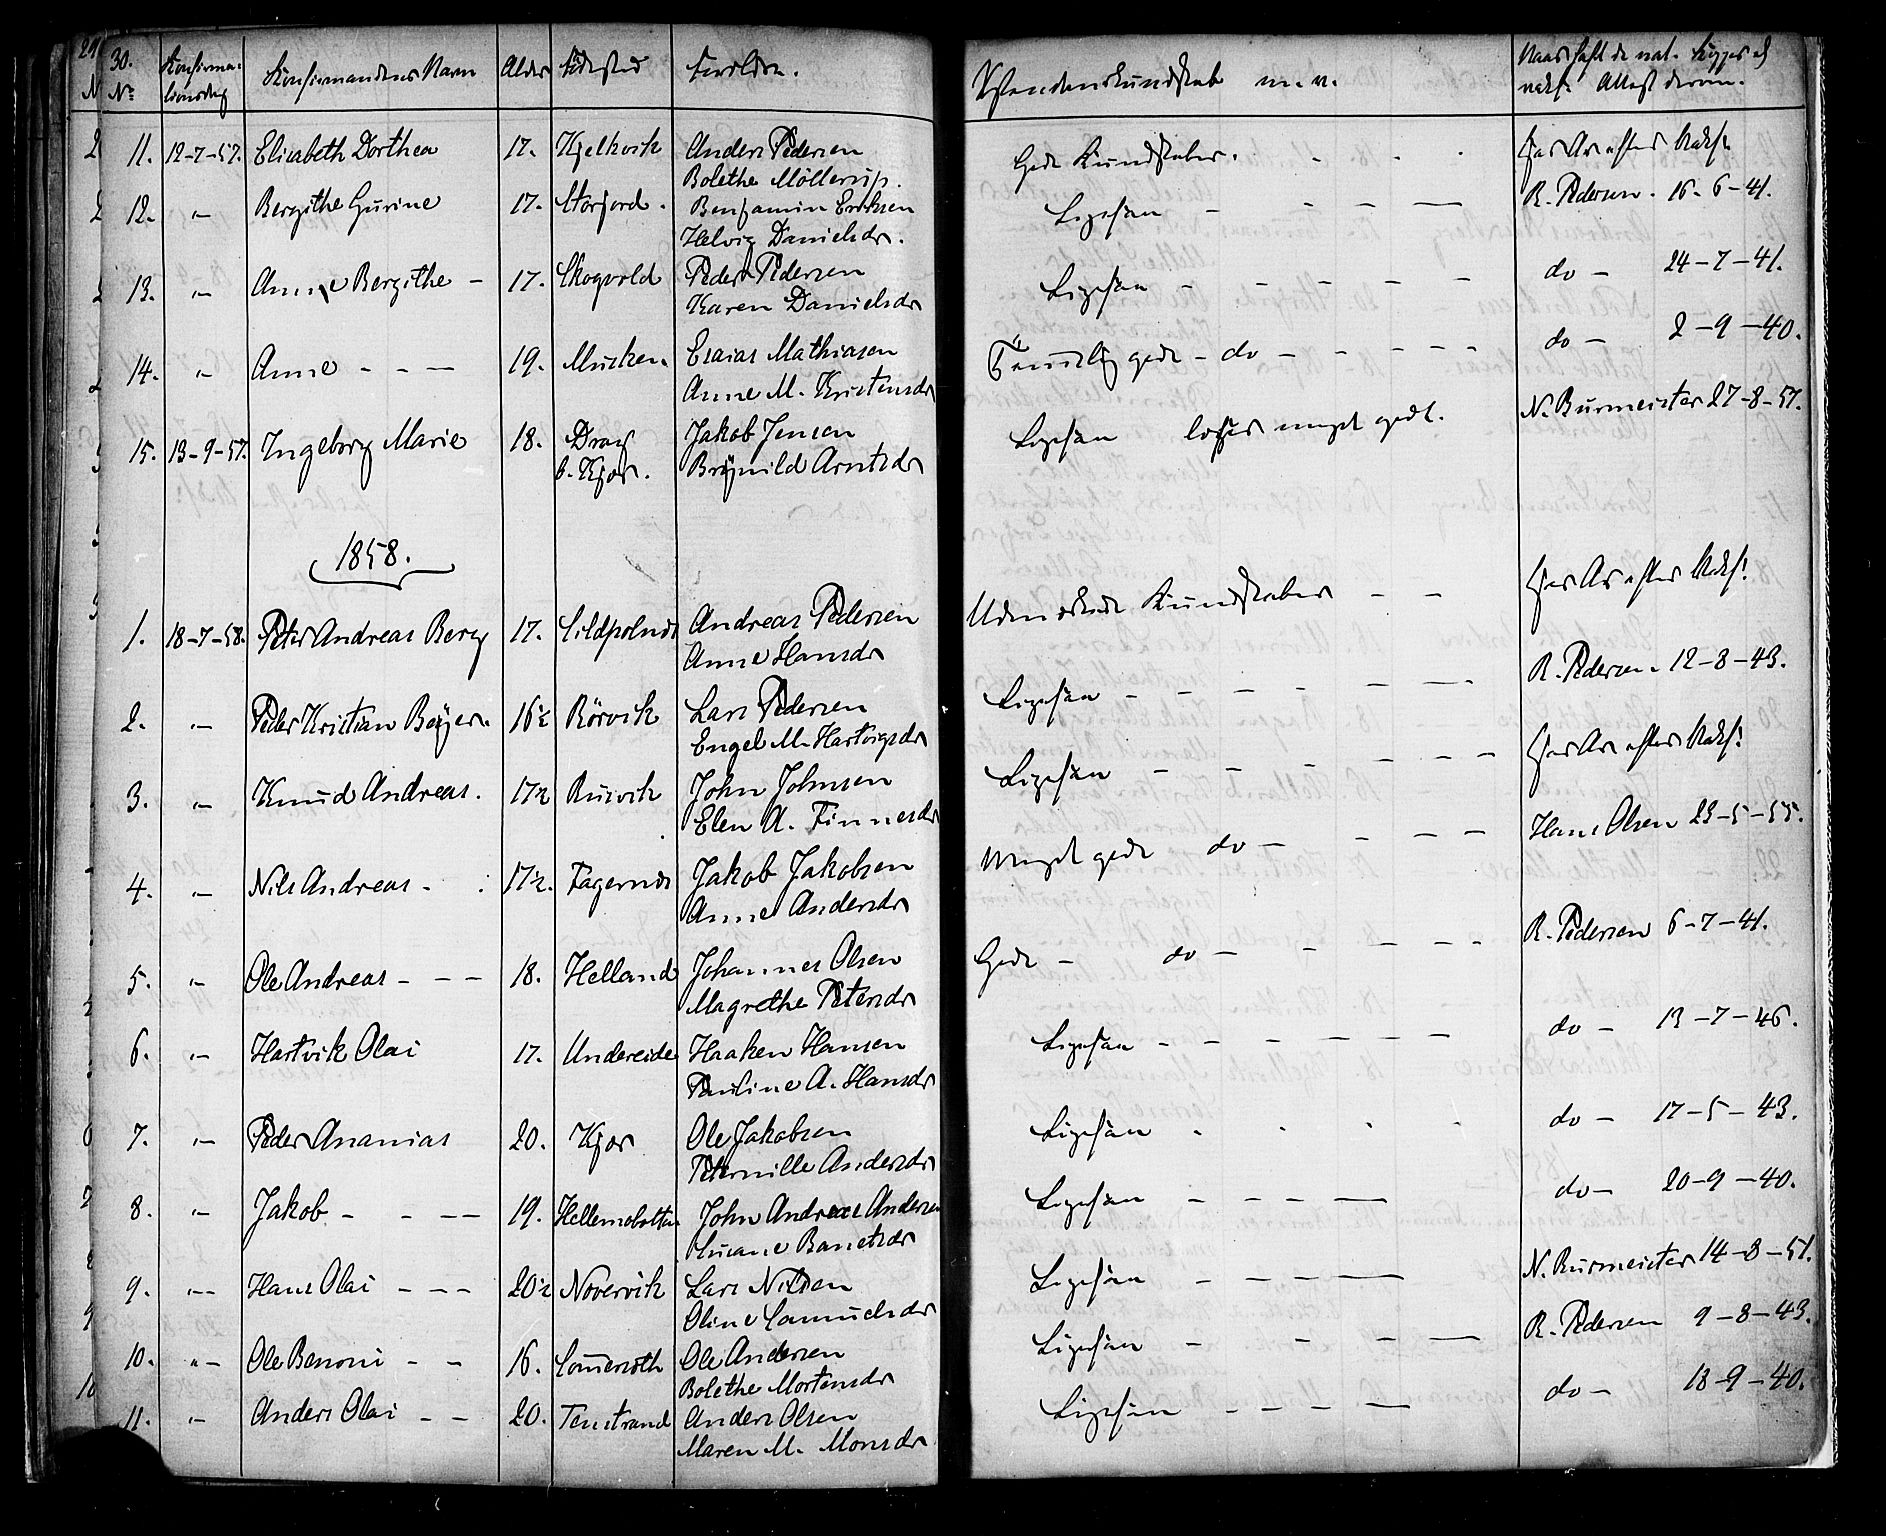 30.
No Konfirma- Konfirmandens Navn Alder Födested Forældre. Kristendomskundskab m.v. Naar haft de nat. Kopper og
tionsdag vaks: Attest derom.
11. 12-7-57. Elisabeth Dorthea 17. Kjelkvik Anders Pedersen Gode Kundskaber. Har Ar efter Vaks:
Bolethe Möllerup. R. Pedersen. 16-6-41.
12. „- Bergithe Gurine 17. Storjord. Benjamin Eriksen Ligesaa
Helvig Danielsdr. do - 24-7-41.
13. „- Anne Bergithe - 17. Skogvold Peder Pedersen Ligesaa
Karen Danielsdr do - 2-9-40.
14. „- Anne - - - 19. Musken. Esaias Mathiasen Temmelig gode - do -
Anne M. Kristensdr N. Burmeister 27-8-51.
15. 13-9-57. Ingeborg Marie 18. Drag Jakob Jensen Ligesaa læser meget godt.
b. Kjær. Brynild Arntsdr
1858.
Har Ar efter Vaks:
1. 18-7-58. Peter Andreas Berg 17. Sildpolnes Andreas Pedersen Udmærkede Kundskaber - -
Anne Hansdr R. Pedersen. 12-8-43.
2. „- Peder Kristian Beyer. 16½ Rörvik Lars Pedersen Ligesaa
Engel M. Hartvigsdr Har Ar efter Vaks:
3. „- Knud Andreas. 17½ Rusvik John Johnsen Ligesaa
Elen A. Finnesdr Hans Olsen 23-5-55.
4. „- Nils Andreas - 17½. Fagernes Jakob Jakobsen Meget gode do -
Anne Andersdr R. Pedersen 6-7-41.
5. „- Ole Andreas - - - 18. Helland Johannes Olsen Gode - do -
Magrethe Petersdr do - 13-7-46.
6. „- Hartvik Olai 17. Undereide Haaken Hansen Ligesaa
Pauline A. Hansdr
7. „- Peder Ananias 20. Kjær Ole Jakobsen Ligesaa do - 17-5-43.
Peternille Andersdr
8. „- Jakob - - - 19. Hellemobotten John Andreas Andersen Ligesaa do - 20-9-40.
Susane Banetsdr
9. „- Hans Olai - - - 20½ Novervik Lars Nilsen Ligesaa N. Burmeister 14-8-51.
Oline Samuelsdr
10. „- Ole Benoni - - 16. Somerseth Ole Andersen Ligesaa R. Pedersen 9-8-43.
Bolethe Mortensdr
11. „- Anders Olai - - 20. Tenstrand Anders Olsen Ligesaa do - 18-9-40.
Maren M. Monsdr